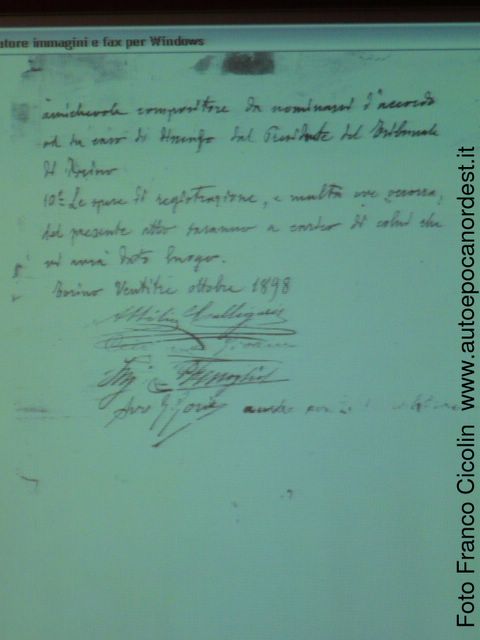 atore immagini e fax per Windows
amichevole compositore da nominarsi d'accordo
od in caso di disaccordo dal Presidente del Tribunale
di Torino
10º Le spese di registrazione, e multa ove occorra,
del presente atto saranno a carico di colui che
vi avrà dato luogo.
Torino Ventitre ottobre 1898
Attilio Calligaris
Foto Franco Cicolin www.autoepocanordest.it